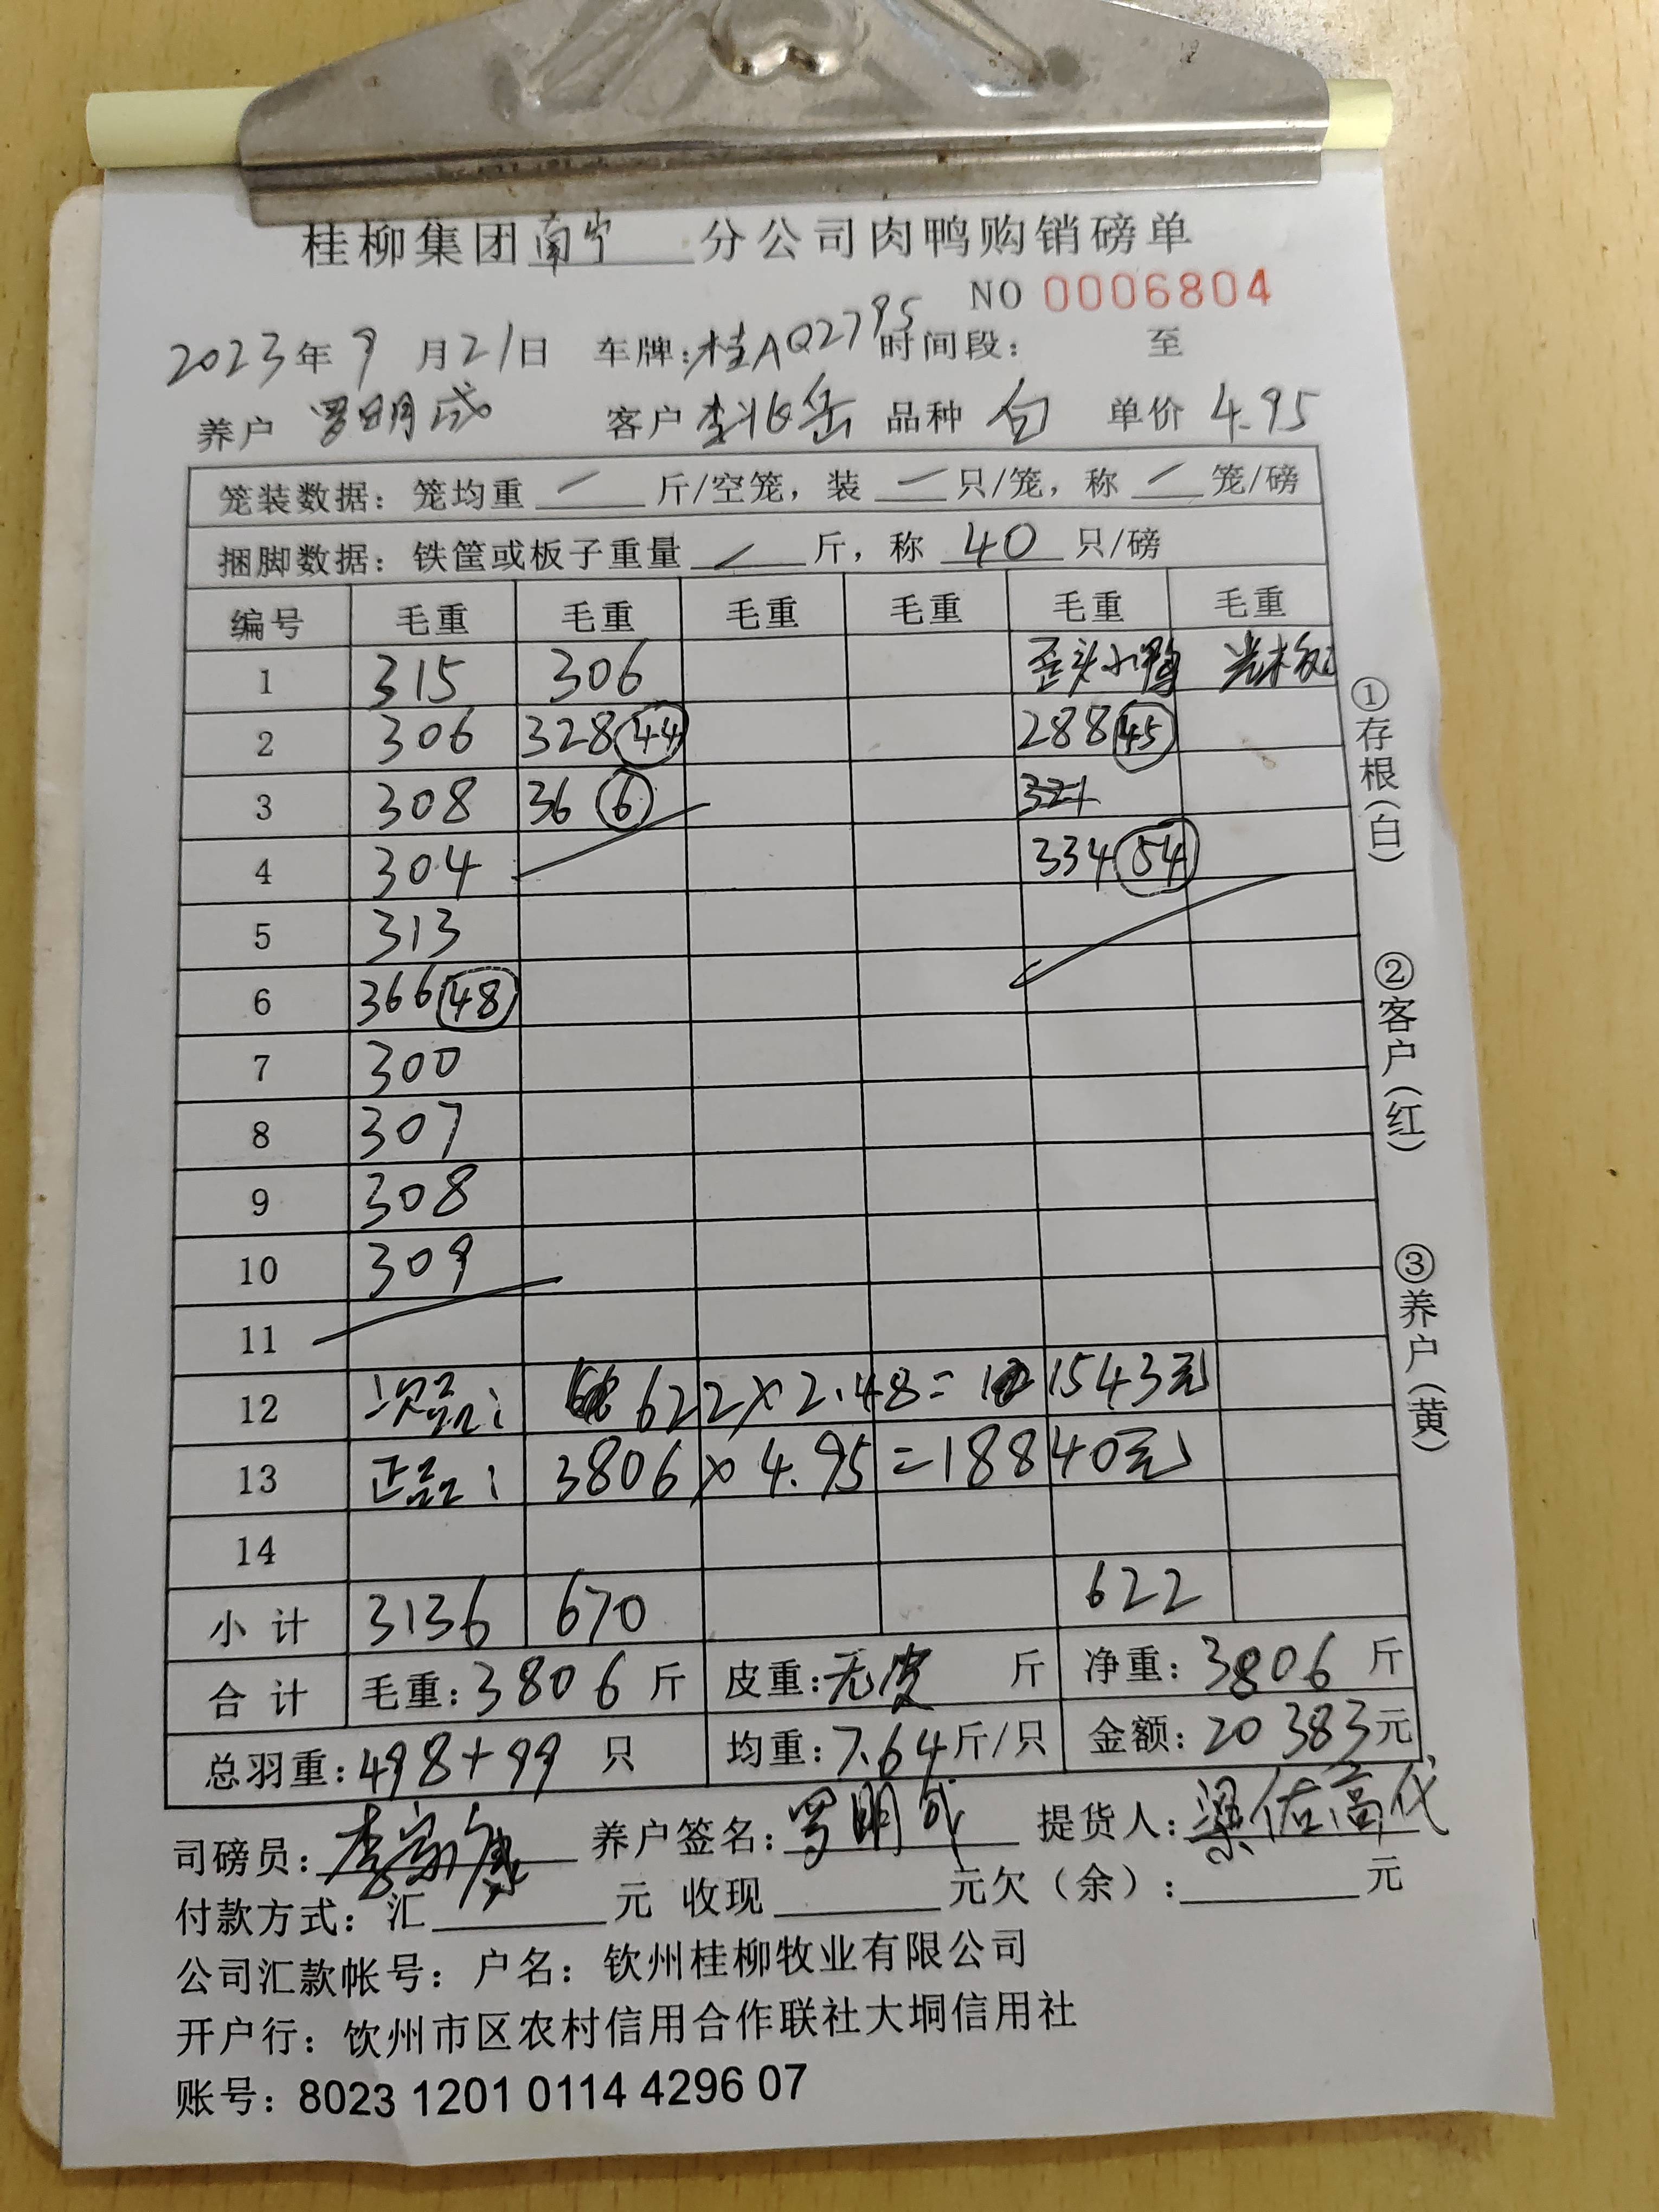 桂柳集团南宁分公司肉鸭购销磅单
NO 0006804
2023年9月21日 车牌:桂AQ2795 时间段: 至
养户 罗明成 客户 李兆岳 品种 白 单价 4.95
笼装数据: 笼均重 / 斤/空笼, 装 / 只/笼, 称 / 笼/磅
捆脚数据: 铁筐或板子重量 / 斤, 称 40 只/磅
编号 毛重 毛重 毛重 毛重 毛重 毛重
1 315 306 歪头小鸭
2 306 328 44 288 45
3 308 36 6 321
4 304 334 54
5 313
6 366 48
7 300
8 307
9 308
10 309
11
12 次品: 622×2.48= 1543元
13 正品: 3806×4.95=18840元
14
小计 3136 670 622
合计 毛重:3806斤 皮重:无皮 斤 净重:3806斤
总羽重:498+99 只 均重:7.64斤/只 金额:20383元
司磅员:李家康 养户签名:罗明成 提货人:梁佑高代
付款方式: 汇 元 收现 元欠(余): 元
公司汇款帐号: 户名: 钦州桂柳牧业有限公司
开户行: 钦州市区农村信用合作联社大垌信用社
账号: 8023 1201 0114 4296 07
①存根(白)
②客户(红)
③养户(黄)